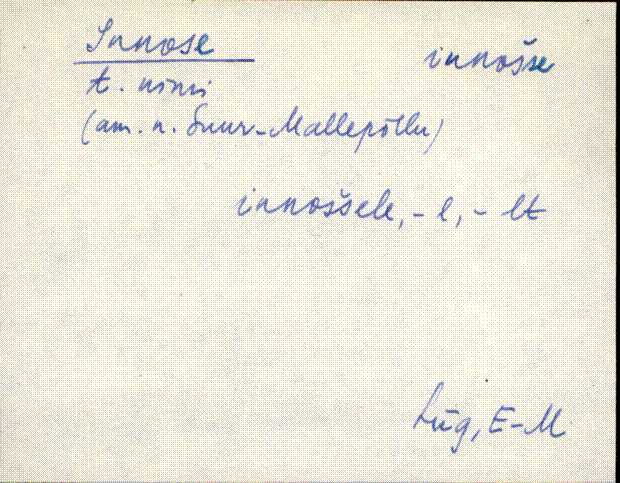 Innose innošse
t. nimi
(am. n. Suur-Mallepõllu)
innoššele, -l, -lt
Lüg, E-M